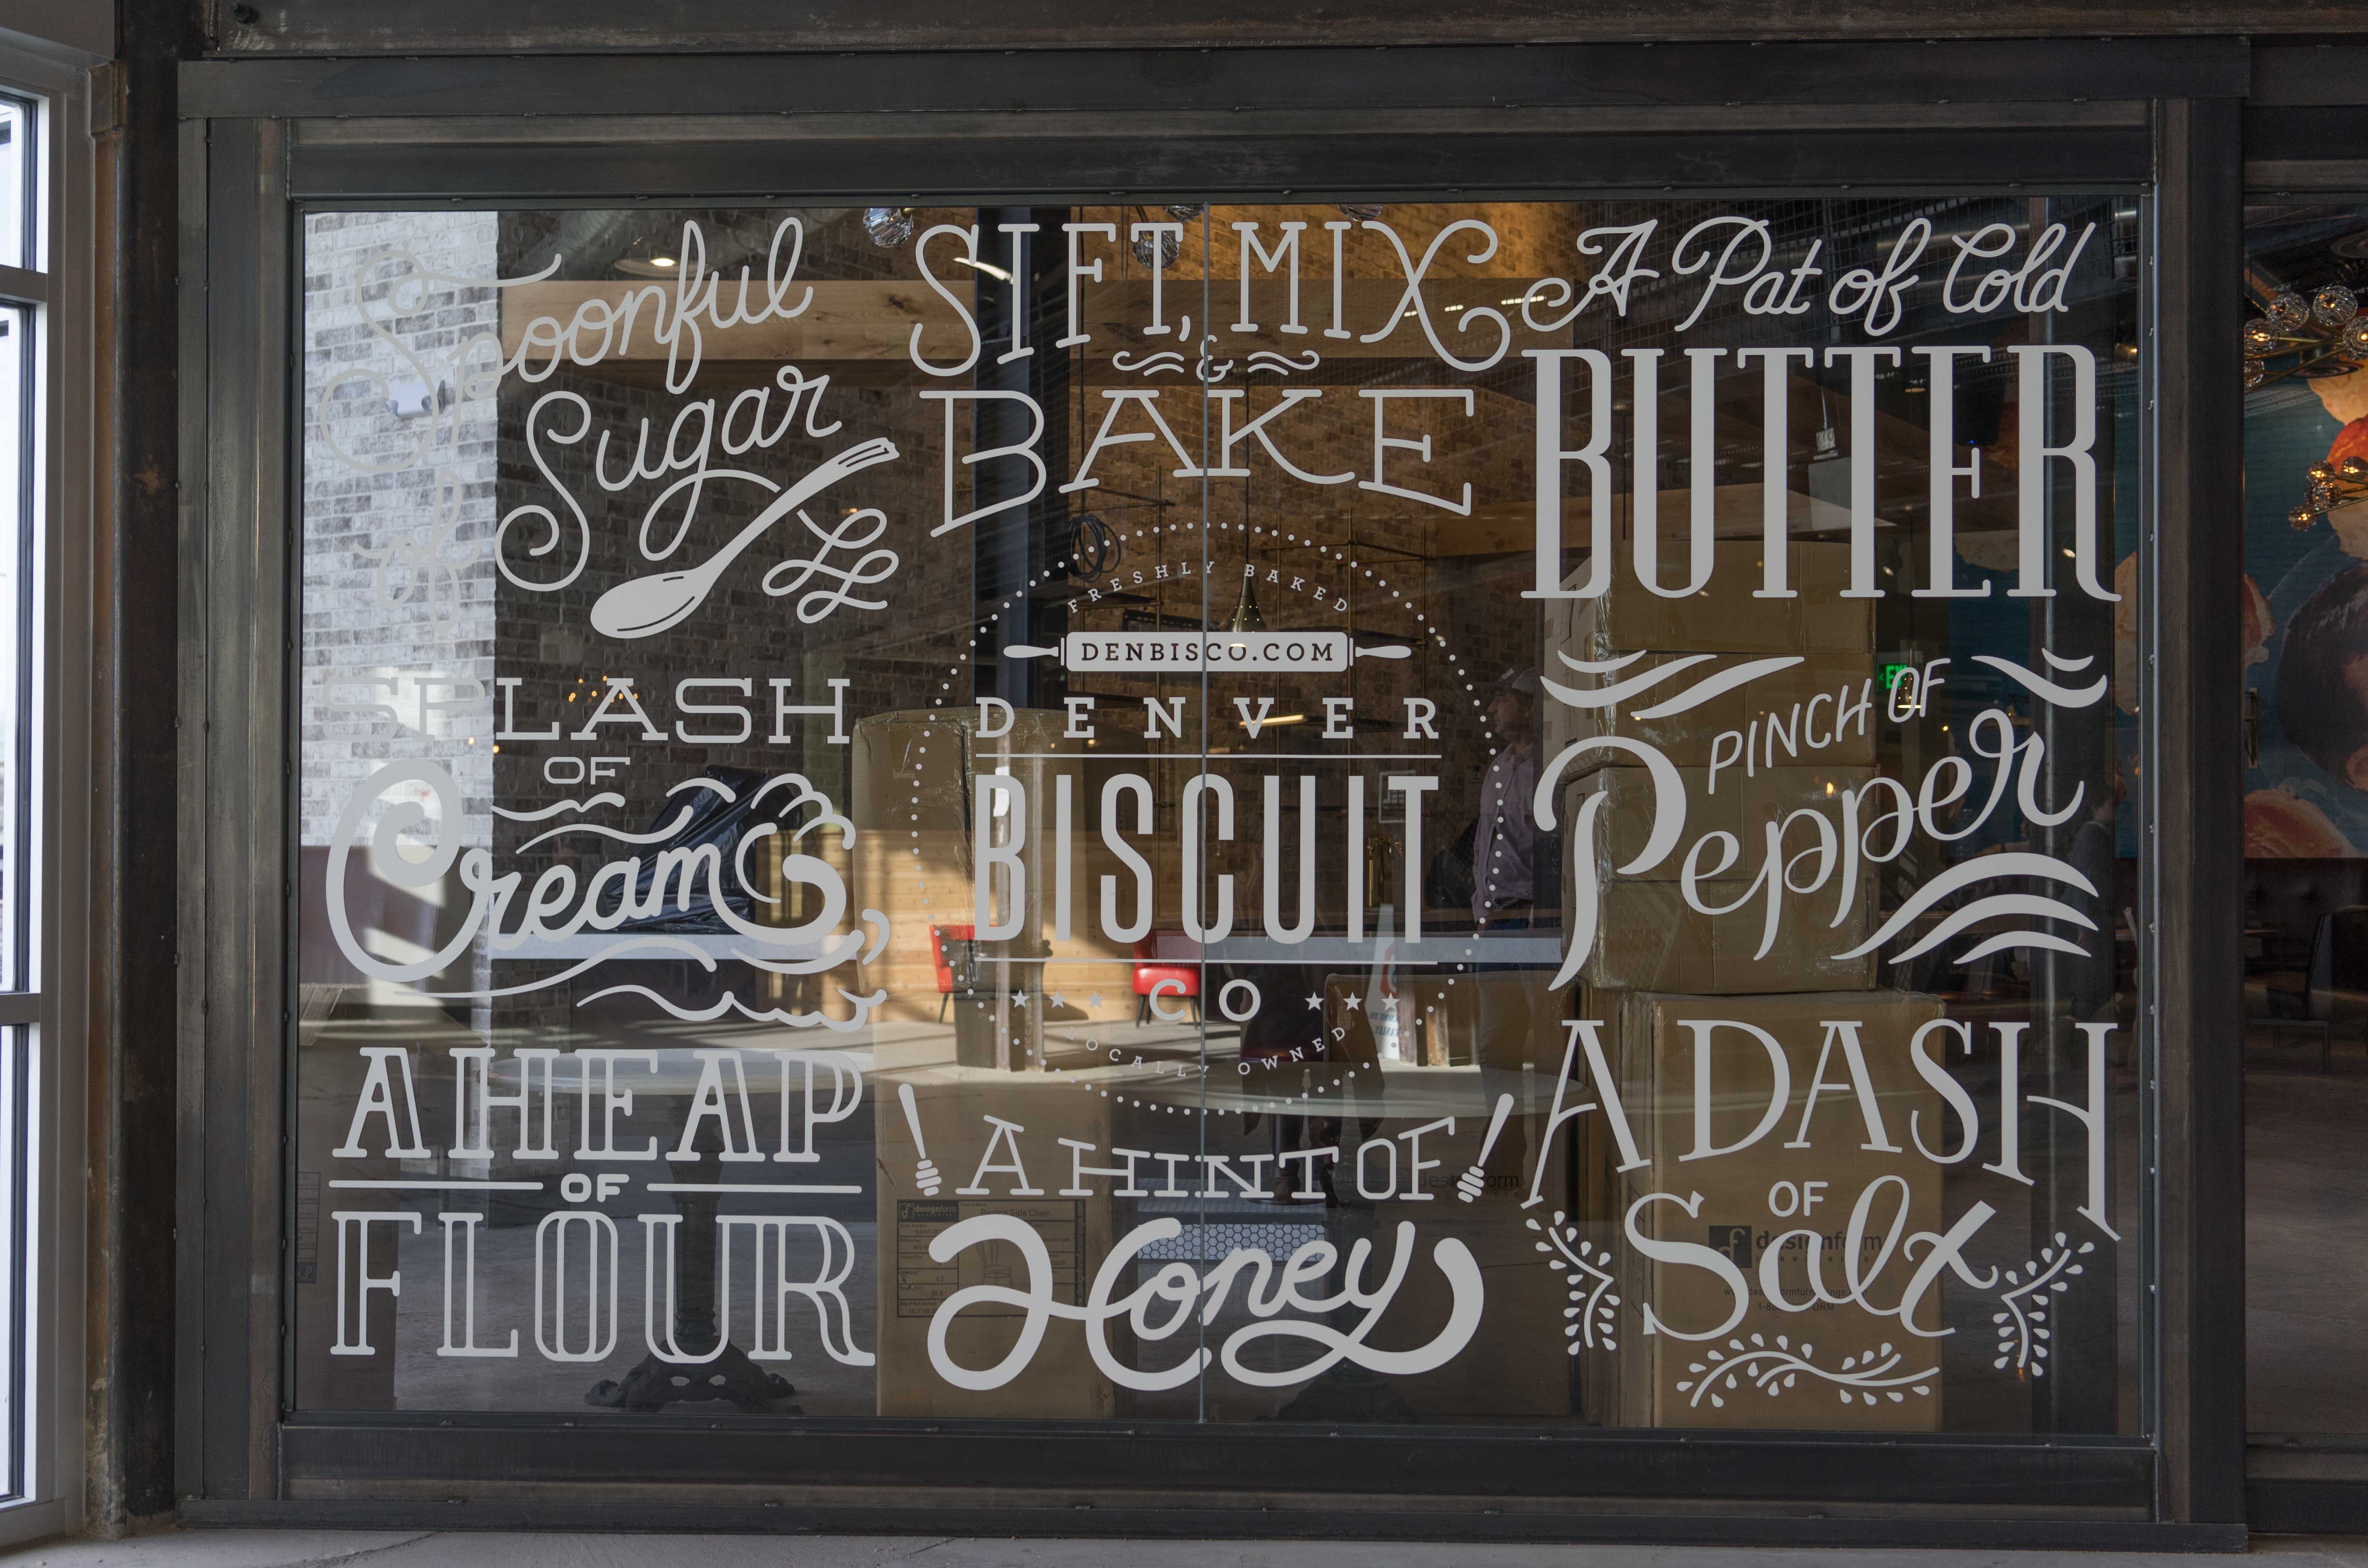 Spoonful
of Sugar
SPLASH
OF
Cream
A HEAP
OF
FLOUR
SIFT, MIX
&
BAKE
FRESHLY BAKED
DENBISCO.COM
DENVER
BISCUIT
CO
LOCALLY OWNED
A HINT OF
Honey
A Pat of Cold
BUTTER
PINCH OF
Pepper
A DASH
OF
Salt
designform
designform
Side Chair